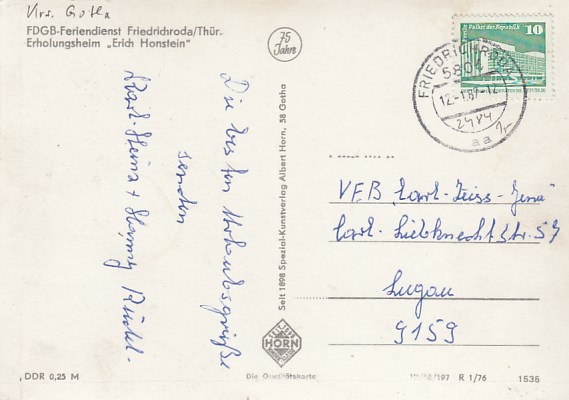 Krs. Gotha
FDGB-Feriendienst Friedrichroda/Thür.
Erholungsheim „Erich Honstein"
75
Jahre
Die besten Urlaubsgrüße
senden
Karl-Heinz +
Seit 1898 Spezial-Kunstverlag Albert Horn, 58 Gotha
HORN
Die Qualitätskarte
DDR 0,25 M
10
Palast der Republik
FRIEDRICHRODA
5804
12.-1.87-12
aa
VEB „Carl-Zeiss-Jena"
Carl-Liebknechtstr. 57
Lugau
9159
R 1/76
1535